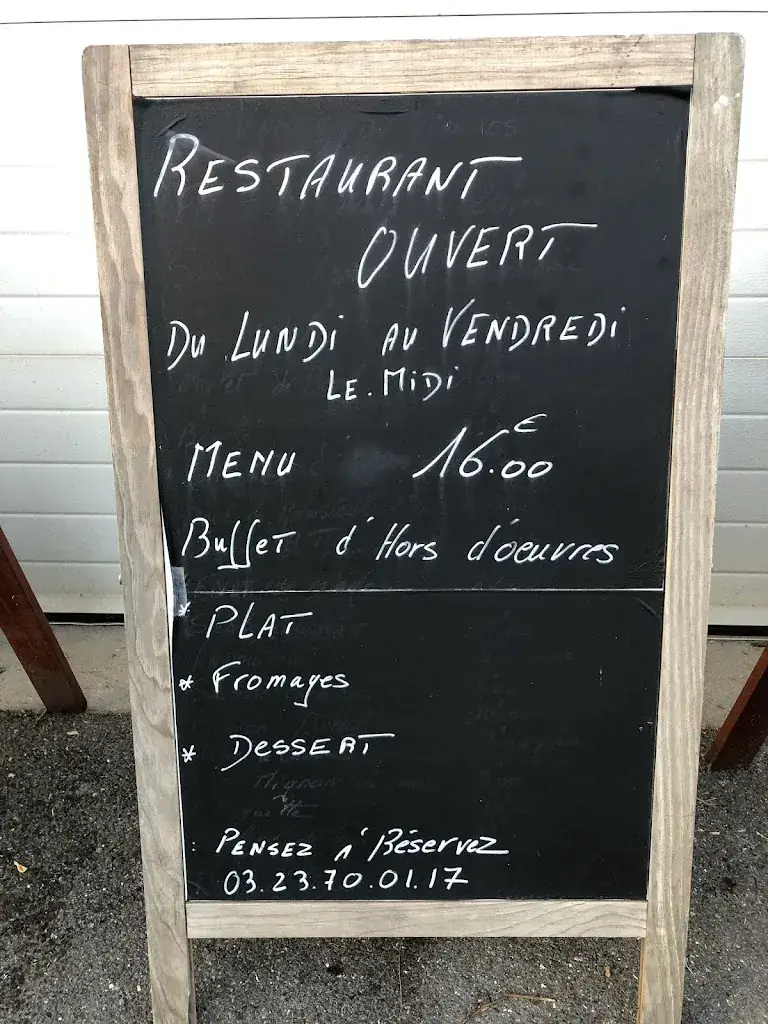 RESTAURANT
OUVERT
DU LUNDI AU VENDREDI
LE.MIDI
MENU 16.00 €
Buffet d'Hors d'oeuvres
* PLAT
* Fromages
* DESSERT
: PENSEZ A' Réservez
03.23.70.01.17